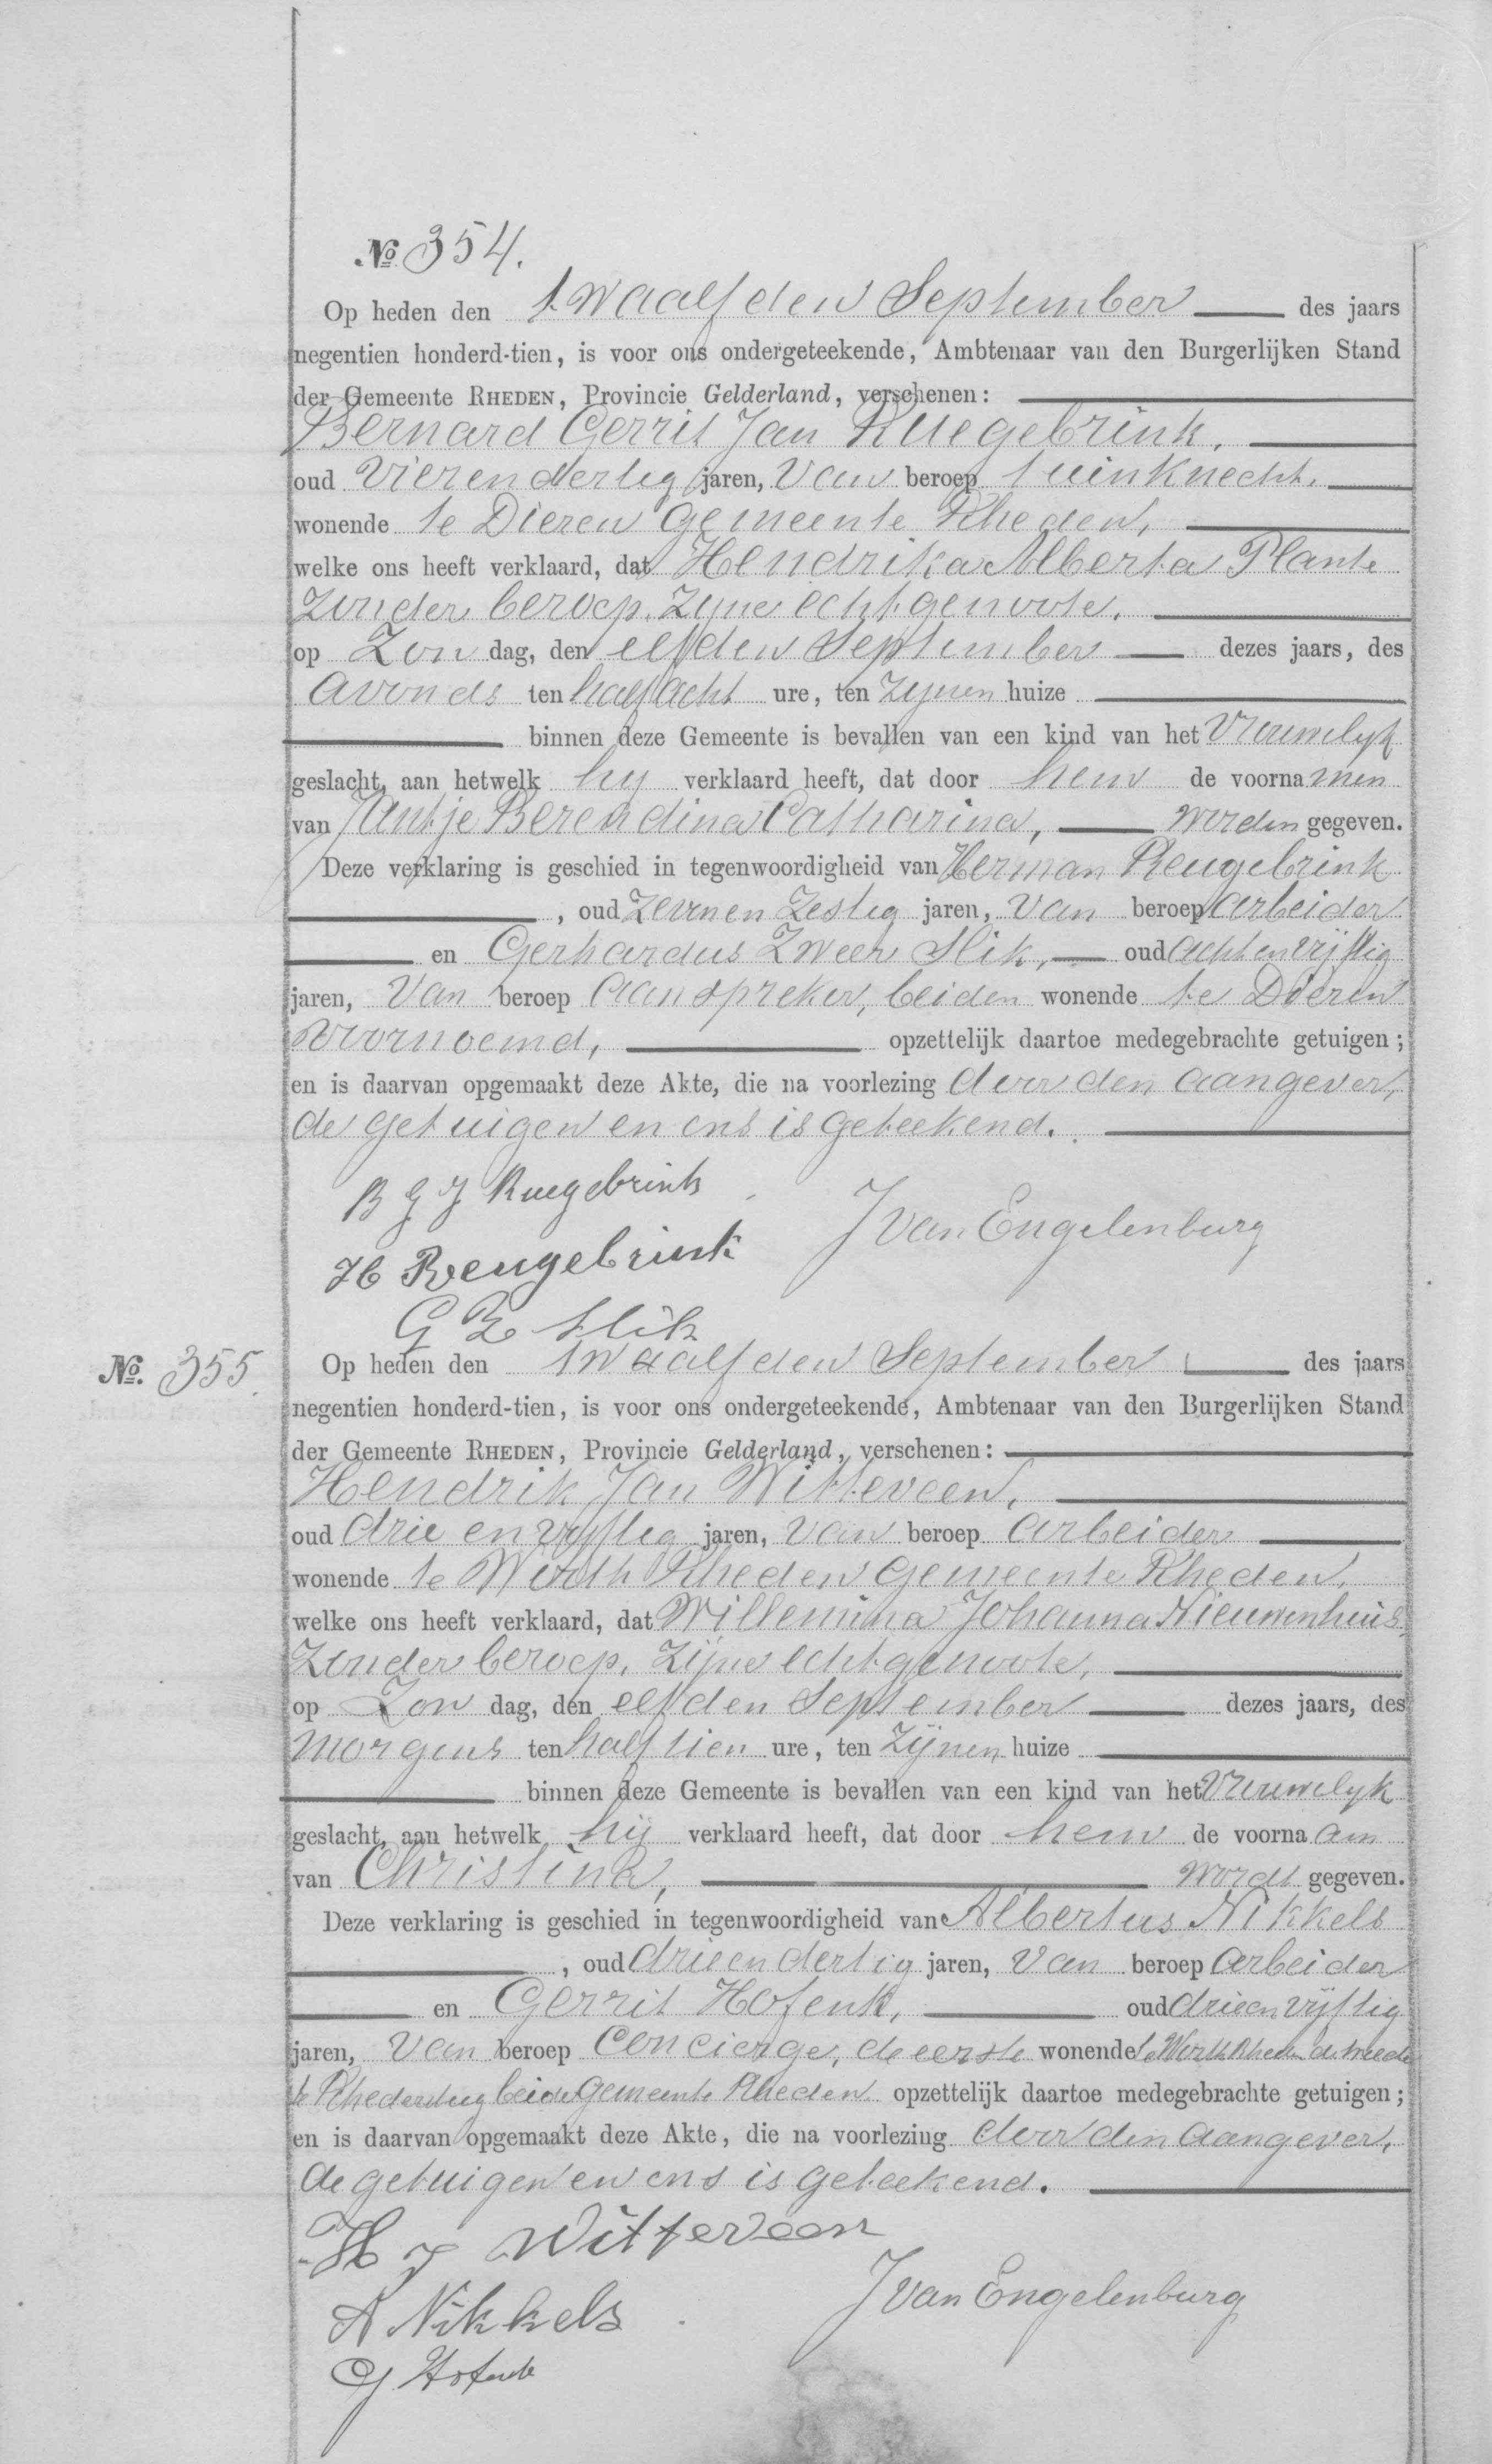 No 354.
Op heden den twaalfden September des jaars
negentien honderd-tien, is voor ons ondergeteekende, Ambtenaar van den Burgerlijken Stand
der Gemeente RHEDEN, Provincie Gelderland, verschenen:
Bernard Gerrit Jan Ruegebrink,
oud vierendertig jaren, van beroep tuinknecht,
wonende te Dieren gemeente Rheden,
welke ons heeft verklaard, dat Hendrika Alberta Plante
zonder beroep, zijne echtgenoote,
op Zondag, den elfden September dezes jaars, des
avonds ten half acht ure, ten zijnen huize
binnen deze Gemeente is bevallen van een kind van het vrouwelijk
geslacht, aan hetwelk hij verklaard heeft, dat door hem de voornamen
van Jantje Berendina Catharina, worden gegeven.
Deze verklaring is geschied in tegenwoordigheid van Herman Reugebrink
, oud zevenenzestig jaren, van beroep arbeider
en Gerhardus Zweer Slik, oud achtenvijftig
jaren, van beroep aanspreker, beiden wonende te Dieren
voornoemd, opzettelijk daartoe medegebrachte getuigen;
en is daarvan opgemaakt deze Akte, die na voorlezing door den aangever,
de getuigen en ons is geteekend.
B G J Ruegebrink
J van Engelenburg
H Reugebrink
G Z Slik
No. 355.
Op heden den twaalfden September des jaars
negentien honderd-tien, is voor ons ondergeteekende, Ambtenaar van den Burgerlijken Stand
der Gemeente RHEDEN, Provincie Gelderland, verschenen:
Hendrik Jan Witteveen,
oud drie en vijftig jaren, van beroep arbeider
wonende te Worth Rheden gemeente Rheden,
welke ons heeft verklaard, dat Willemina Johanna Nieuwenhuis,
zonder beroep, zijne echtgenoote,
op Zondag, den elfden September dezes jaars, des
morgens ten half tien ure, ten zijnen huize
binnen deze Gemeente is bevallen van een kind van het vrouwelijk
geslacht, aan hetwelk hij verklaard heeft, dat door hem de voornaam
van Christina, wordt gegeven.
Deze verklaring is geschied in tegenwoordigheid van Albertus Nikkels
, oud drieendertig jaren, van beroep arbeider
en Gerrit Hofenk, oud drieenvijftig
jaren, van beroep concierge, de eerste wonende te Worth Rheden de tweede
te Rhedersteeg beide gemeente Rheden opzettelijk daartoe medegebrachte getuigen;
en is daarvan opgemaakt deze Akte, die na voorlezing door den aangever,
de getuigen en ons is geteekend.
H J Witteveen
J van Engelenburg
A Nikkels
G Hofenk